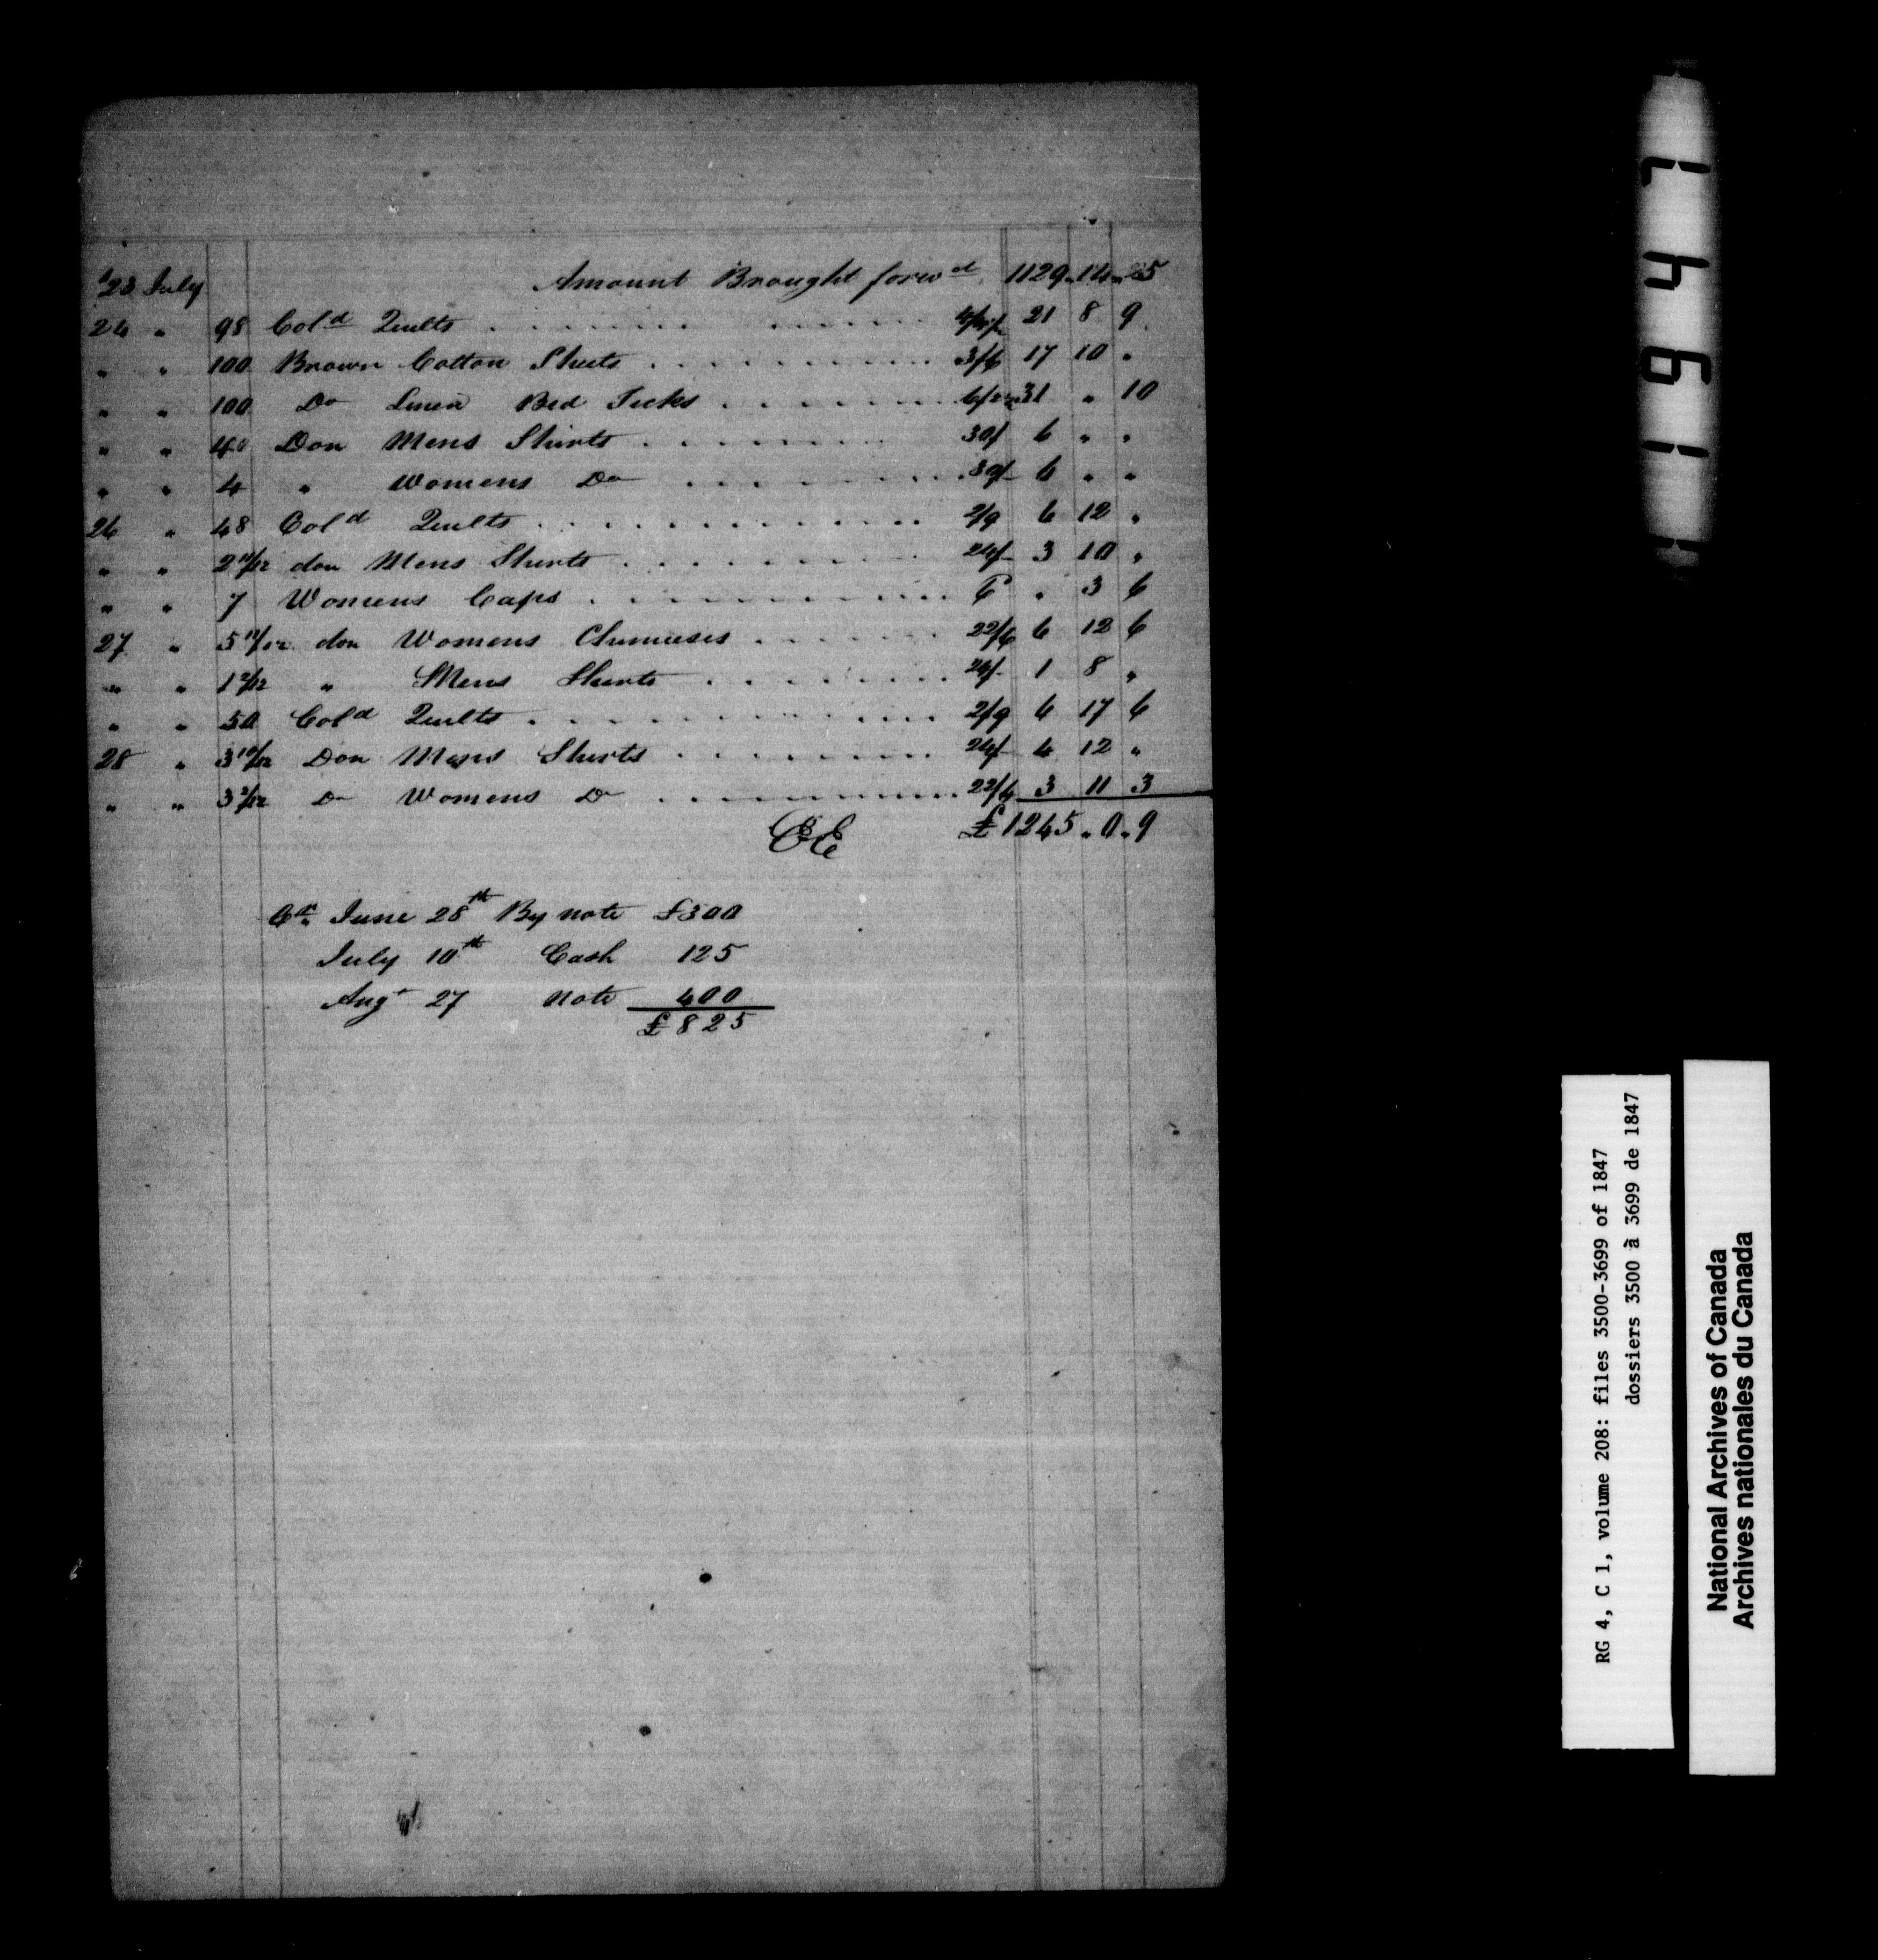 23 July Amount Brought forwd 1129 „ 14 „ 5
24 " 98 Cold Quilts . . . . . . 4/4½ 21 8 9
" " 100 Brown Cotton Sheets . . . . . . 3/6 17 10 "
" " 100 Do Linen Bed Ticks . . . . . . 31 " 10
" " 4 Doz Mens Shirts . . . . . . 30/ 6 " "
" " 4 " Womens Do . . . . . . 30/ 6 " "
26 " 48 Cold Quilts . . . . . . 2/9 6 12 "
" " 2 11/12 doz Mens Shirts . . . . . . 24/ 3 10 "
" " 7 Womens Caps . . . . . . 6 " 3 6
27 " 5 11/12 doz Womens Chemieses . . . . . . 22/6 6 12 6
" " 1 2/12 " Mens Shirts . . . . . . 24/ 1 8 "
" " 50 Cold Quilts . . . . . . 2/9 6 17 6
28 " 3 10/12 Doz Mens Shirts . . . . . . 24/ 4 12 "
" " 3 2/12 Do Womens Do . . . . . . 22/6 3 11 3
EE £1245 „ 0 „ 9
Cr. June 28th By note £300
July 10th Cash 125
Augt 27 note 400
£825
7491
RG 4, C 1, volume 208: files 3500-3699 of 1847
dossiers 3500 à 3699 de 1847
National Archives of Canada
Archives nationales du Canada